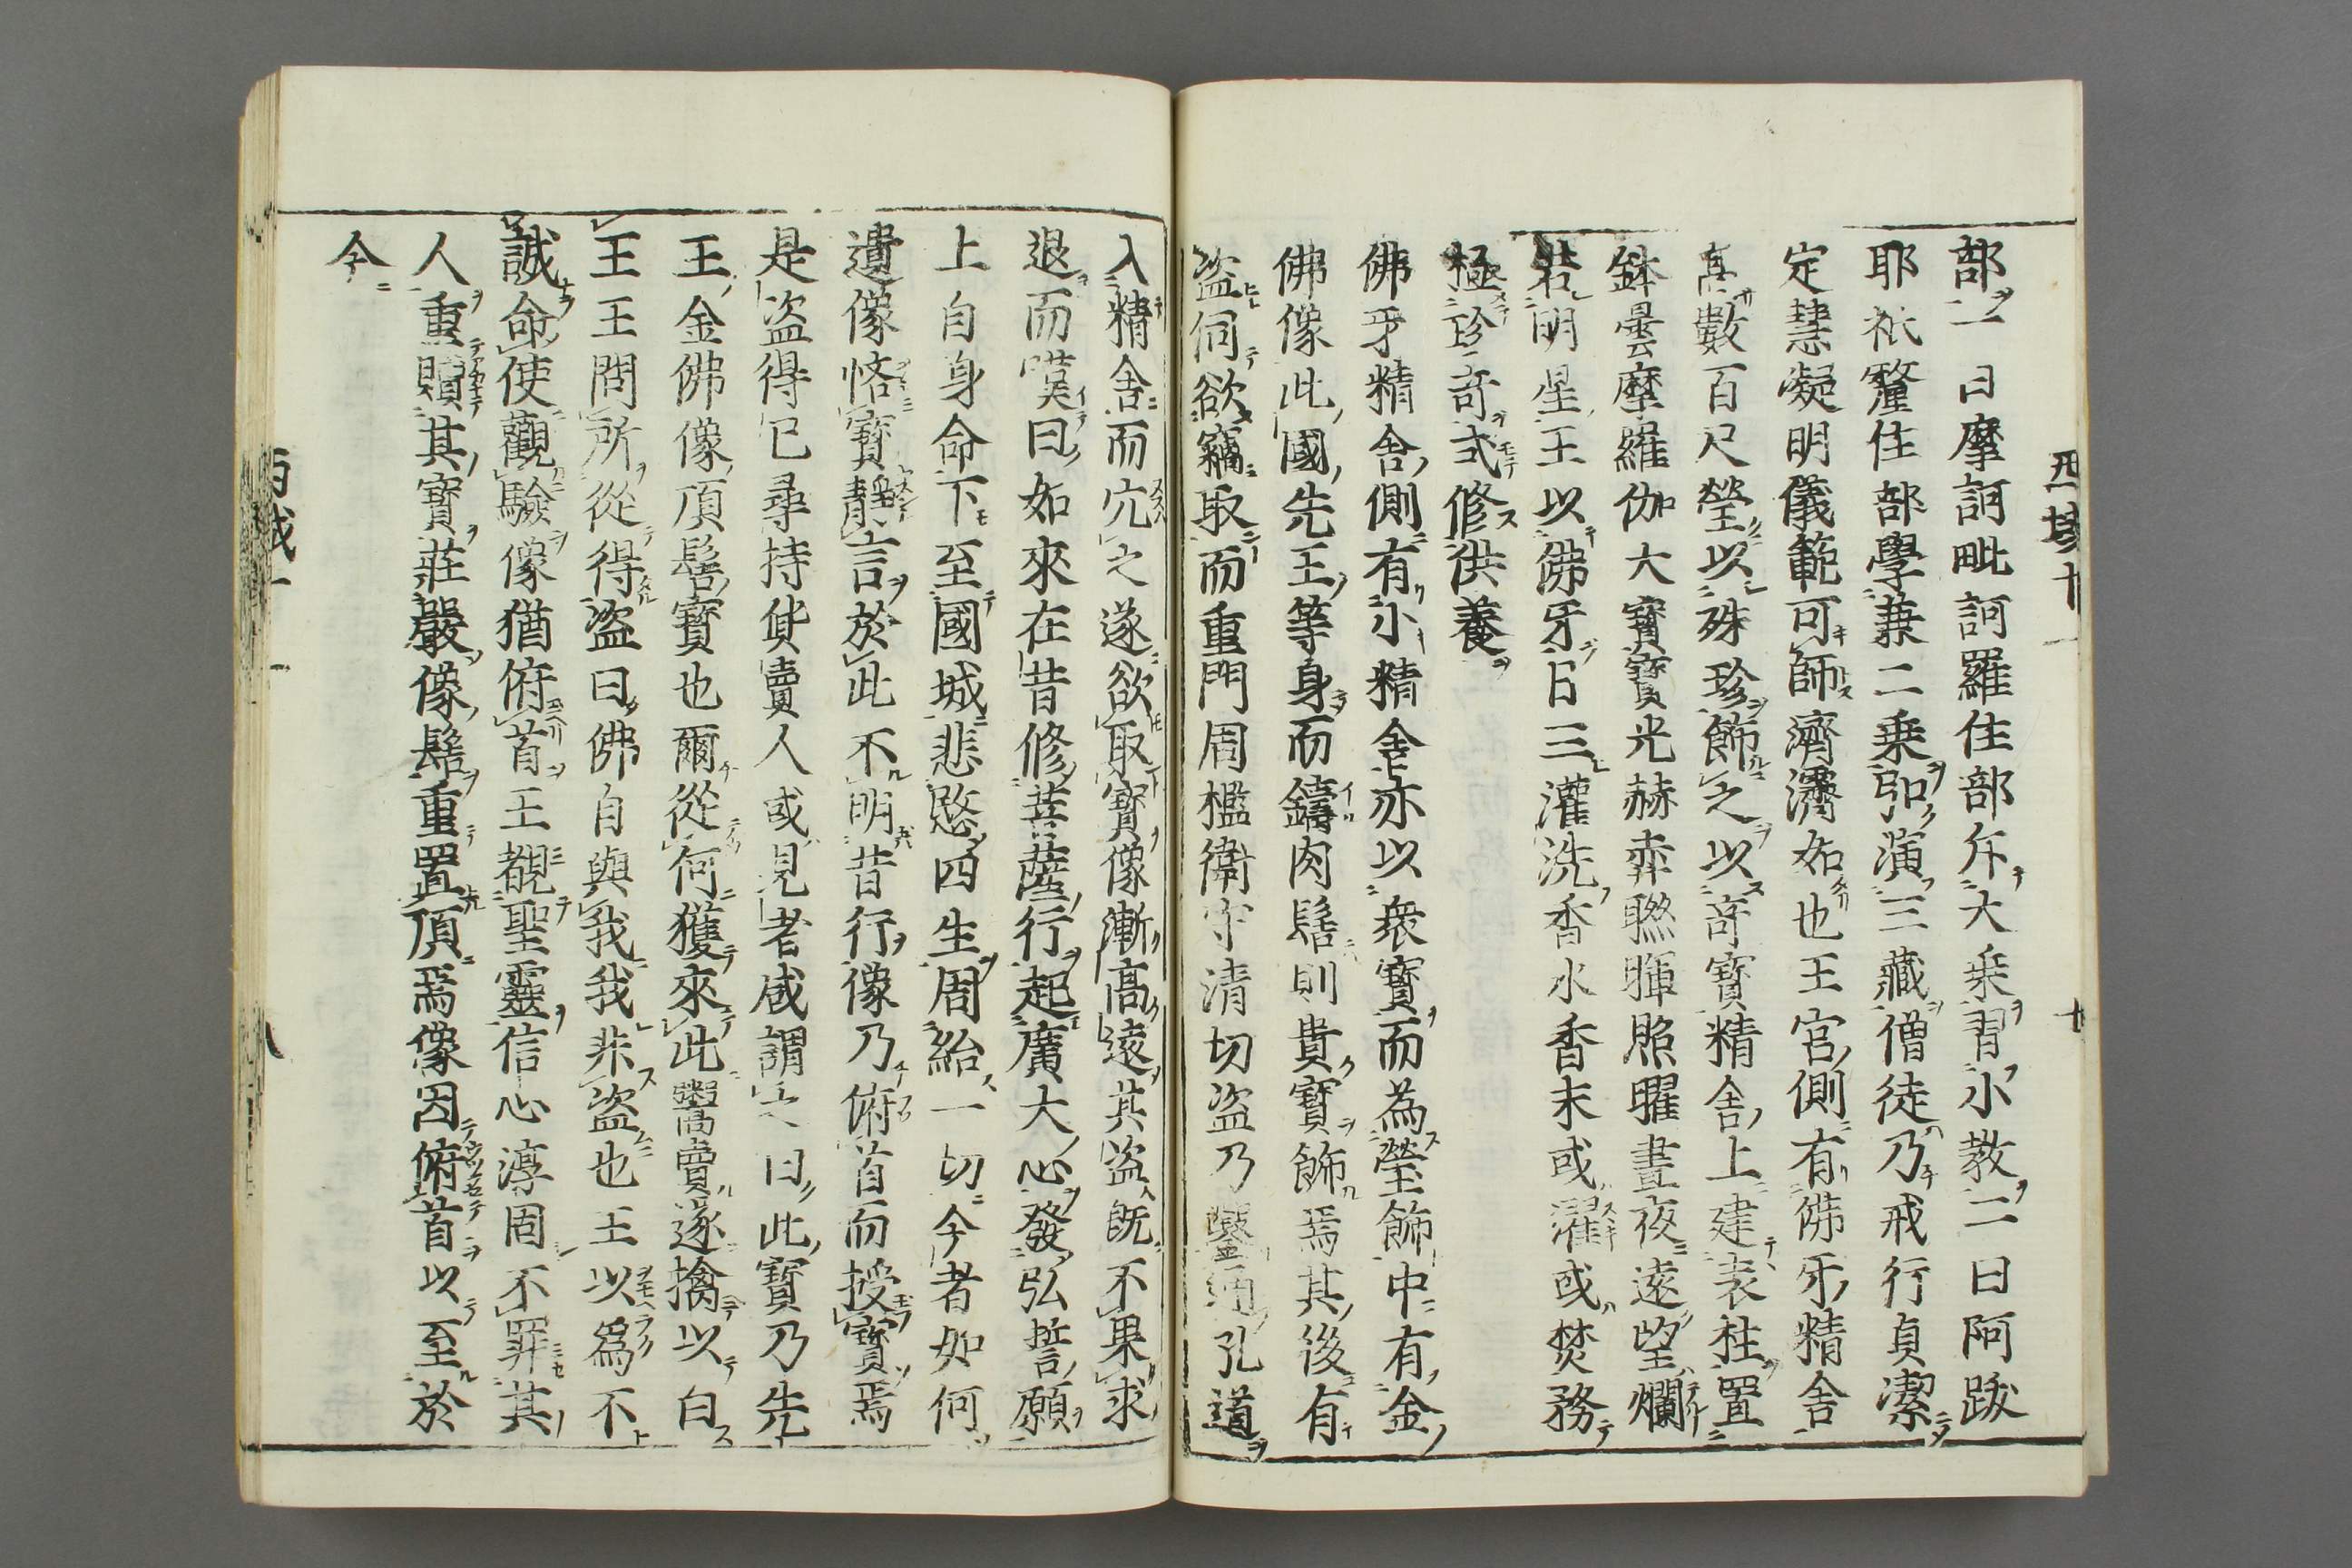 部一曰摩訶毗訶羅住部斥大乗習小教二曰阿跋
耶祇釐住部學兼二乗弘演三藏僧徒乃戒行貞潔
定慧凝明儀範可師濟濟如也王宮側有佛牙精舍
高數百尺瑩以殊珍飾之以奇寶精舍上建表柱置
鉢曇摩羅伽大寶寶光赫奕聯暉照曜晝夜遠望爛
若明星王以佛牙日三灌洗香水香末或濯或焚務
極珍奇式修供養
佛牙精舍側有小精舍亦以衆寶而為瑩飾中有金
佛像此國先王等身而鑄肉髻則貴寶飾焉其後有
盗伺欲竊取而重門周檻衛守清切盗乃鑿通孔道
入精舍而穴之遂欲取寶像漸髙遠其盗既不果求
退而嘆曰如來在昔修菩薩行起廣大心發弘誓願
上自身命下至國城悲愍四生周給一切今者如何
遺像悋寶靜言於此不明昔行像乃俯首而授寶焉
是盗得已尋持貨賣人或見者咸謂之曰此寶乃先
王金佛像頂髻寶也爾從何獲來此鬻賣遂擒以白
王王問所從得盗曰佛自與我我非盗也王以爲不
誠命使觀驗像猶俯首王覩聖靈信心淳固不罪其
人重贖其寶莊嚴像髻重置頂焉像因俯首以至於
今
西域十一
十
西域十一
八